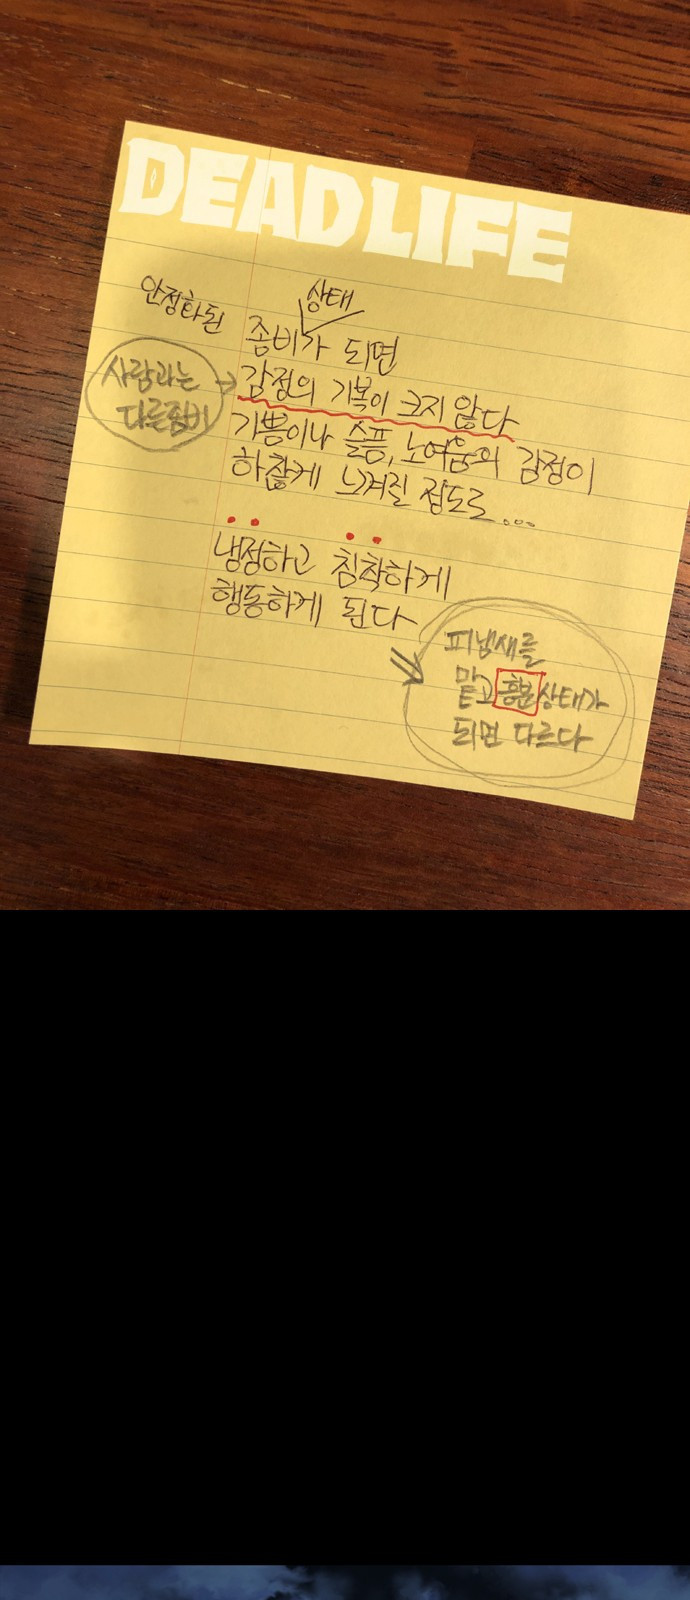 DEAD LIFE
안정화된
상태
좀비가 되면
사람과는
다른좀비
감정의 기복이 크지 않다
기쁨이나 슬픔, 노여움의 감정이
하찮게 느껴질 정도로...
냉정하고 침착하게
행동하게 된다
피냄새를
맡고 흥분상태가
되면 다르다